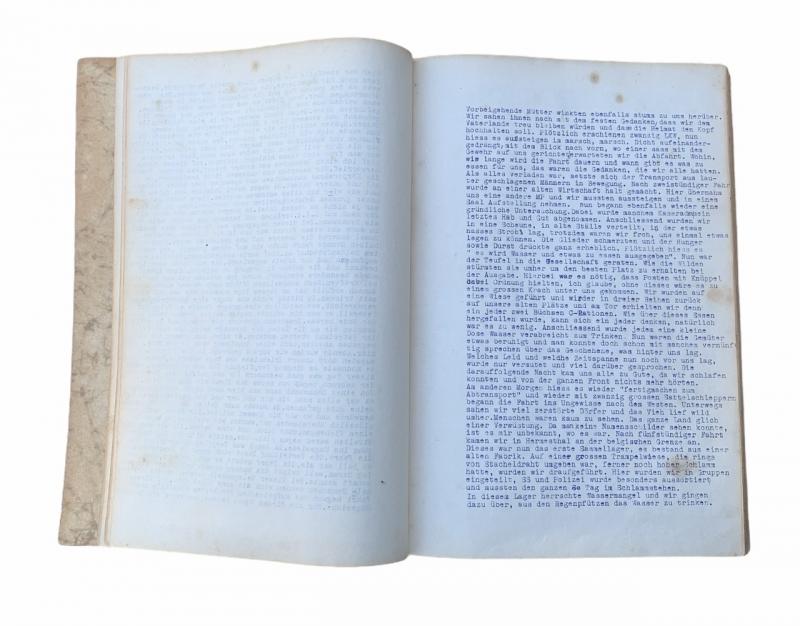 Vorbeigehende Mütter winkten ebenfalls stumm zu uns herüber.
Wir sahen ihnen nach mit dem festen Gedanken, dass wir dem
Vaterlande treu bleiben würden und dass die Heimat den Kopf
hochhalten soll. Plötzlich erschienen zwanzig LKW, nun
hiess es aufsteigen im marsch, marsch. Dicht aufeinander-
gedrängt, mit dem Blick nach vorn, wo einer sass mit dem
Gewehr auf uns gerichtet erwarteten wir die Abfahrt. Wohin,
wie lange wird die Fahrt dauern und wann gibt es was zu
essen für uns, das waren die Gedanken, die wir alle hatten.
Als alles verladen war, setzte sich der Transport aus lau-
ter geschlagenen Männern in Bewegung. Nach zweistündiger Fahr
wurde an einer alten Wirtschaft halt gemacht. Hier übernahm
uns eine andere MP und wir mussten aussteigen und in einem
Saal Aufstellung nehmen. Nun begann ebenfalls wieder eine
gründliche Untersuchung. Dabei wurde manchem Kameraden sein
letztes Hab und Gut abgenommen. Anschliessend wurden wir
in eine Scheune, in alte Ställe verteilt, in der etwas
nasses Stroh lag, trotzdem waren wir froh, uns einmal etwas
legen zu können. Die Glieder schmerzten und der Hunger
sowie Durst drückte ganz erheblich. Plötzlich hiess es
" es wird Wasser und etwas zu essen ausgegeben". Nun war
der Teufel in die Gesellschaft geraten. Wie die Wilden
stürmten sie umher um den besten Platz zu erhalten bei
der Ausgabe. Hierbei war es nötig, dass Posten mit Knüppel
dabei Ordnung hielten, ich glaube, ohne dieses wäre es zu
einem grossen Krach unter uns gekommen. Wir wurden auf
eine Wiese geführt und wieder in dreier Reihen zurück
auf unsere alten Plätze und am Tor erhielten wir denn
ein jeder zwei Büchsen C-Rationen. Wie über dieses Essen
hergefallen wurde, kann sich ein jeder denken, natürlich
war es zu wenig. Anschliessend wurde jedem eine kleine
Dose Wasser verabreicht zum Trinken. Nun waren die Gemüter
etwas beruhigt und man konnte doch schon mit manchem vernünf
tig sprechen über das Geschehene, was hinter uns lag.
Welches Leid und welche Zeitspanne nun noch vor uns lag,
wurde nur vermutet und viel darüber gesprochen. Die
darauffolgende Nacht kam uns alle zu Gute, da wir schlafen
konnten und von der ganzen Front nichts mehr hörten.
Am anderen Morgen hiess es wieder "fertigmachen zum
Abtransport" und wieder mit zwanzig grossen Sattelschleppern
begann die Fahrt ins Ungewisse nach dem Westen. Unterwegs
sahen wir viel zerstörte Dörfer und das Vieh lief wild
umher. Menschen waren kaum zu sehen. Das ganze Land glich
einer Verwüstung. Da man keine Namensschilder sehen konnte,
ist es mir unbekannt, wo es war. Nach fünfstündiger Fahrt
kamen wir in Hermesthal an der belgischen Grenze an.
Dieses war nun das erste Sammellager, es bestand aus einer
alten Fabrik. Auf einer grossen Trampelwiese, die rings
von Stacheldraht umgeben war, ferner noch hohen Schlamm
hatte, wurden wir draufgeführt. Hier wurden wir in Gruppen
eingeteilt, SS und Polizei wurde besonders aussortiert
und mussten den ganzen Tag im Schlamm stehen.
In dieses Lager herrschte Wassermangel und wir gingen
dazu über, aus den Regenpfützen das Wasser zu trinken.